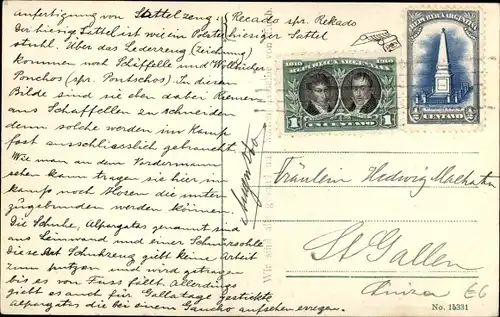 anfertigung von Sattelzeug: Recado spr. Rekado
Der hiesige Sattel ist wie ein Polster hiesiger Sattel
stuhl. Über das Lederzeug (Zeichnung)
kommen noch Schaffelle und
Ponchos (spr. Pontschos). In diesem
Bilde sind sie eben dabei Riemen
aus Schaffellen zu schneiden
denn solche werden im Kamp
fast ausschliesslich gebraucht.
Wie man an dem Vordermann
sehen kann tragen sie hier im
Kamp noch Hosen die unten
zugebunden werden können.
Die Schuhe, Alpargates genannt sind
aus Leinwand und einer Schnursohle
Diese Art Schuhzeug giebt keine Arbeit
zum putzen und wird getragen
bis es vom Fuss fällt. Allerdings
giebt es auch für Gallatage gestickte
alpargates die bei einem Gaucho aufsehen erregen.
1810 1910
REPUBLICA ARGENTINA
1 CENTAVO 1
REPUBLICA ARGENTINA
1/2 CENTAVO 1/2
Fräulein Hedwig
St Gallen
Suiza
E6
No. 15331